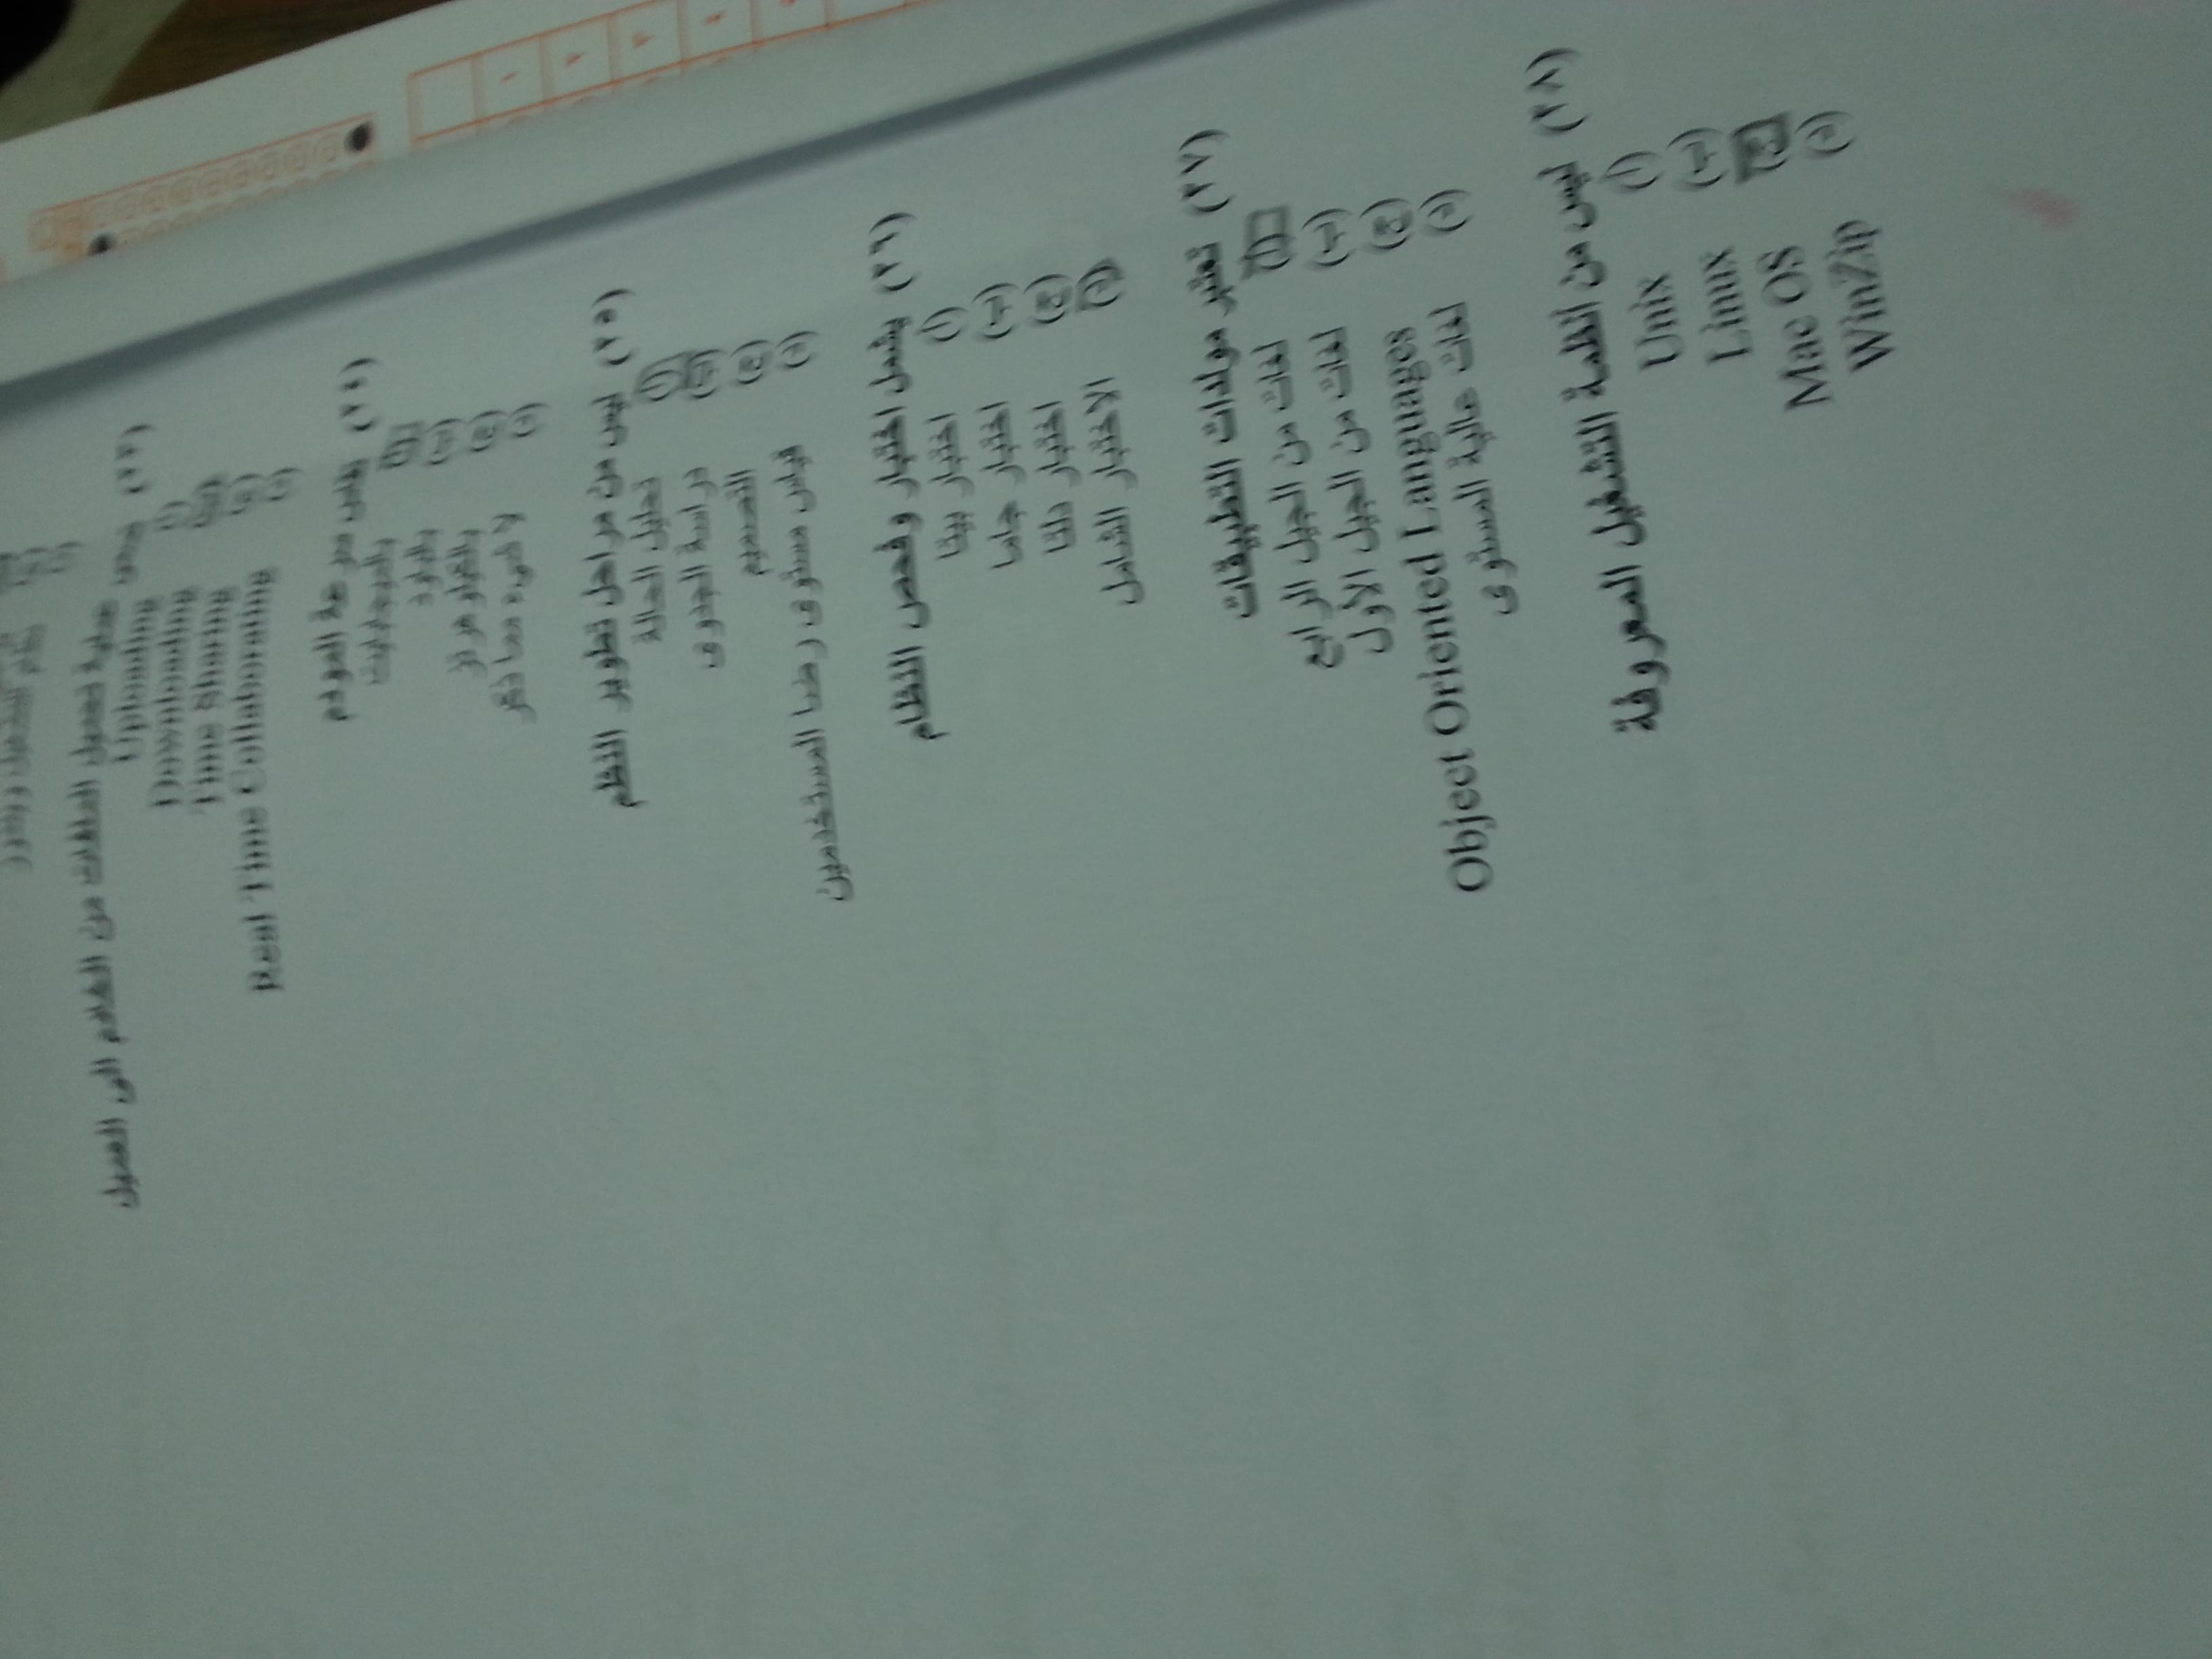 (٢٣) عملية تحميل الملفات من الخادم الى العميل
Uploading
Downloading
Time Sharing
Real Time Collaborating
(٢٤) يقاس سرعة المودم
بالميجابايت
بالباود
بالغيغا هرتز
لا شيء مما ذكر
(٢٥) ليس من مراحل تطوير النظم
(أ) تحليل الحالة
(ب) دراسة الجدوى
(ج) التصميم
(د) قياس مستوى رضا المستخدمين
(٢٦) يشمل اختبار وفحص النظام
(أ) اختبار بيتا
(ب) اختبار جاما
(ج) اختبار دلتا
(د) الاختبار الشامل
(٢٧) تعتبر مولدات التطبيقات
(أ) لغات من الجيل الرابع
(ب) لغات من الجيل الأول
(ج) Object Oriented Languages
(د) لغات عالية المستوى
(٢٨) ليس من انظمة التشغيل المعروفة
(أ) Unix
(ب) Linux
(ج) Mac OS
(د) WinZip